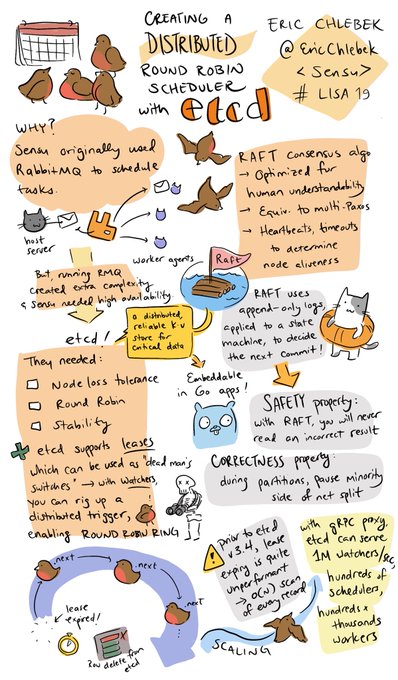 CREATING A
DISTRIBUTED
ROUND ROBIN
SCHEDULER
with etcd
ERIC CHLEBEK
@EricChlebek
<Sensu>
# LISA19
WHY?
Sensu originally used
RabbitMQ to schedule
tasks.
host
server
worker agents
RAFT consensus algo
→ Optimized for
human understandability
→ Equiv. to multi-Paxos
→ Heartbeats, timeouts
to determine
node aliveness
But, running RMQ
created extra complexity
& Sensu needed high availability.
Raft
etcd!
a distributed,
reliable K-V
store for
critical data
RAFT uses
append-only logs,
applied to a state
machine, to decide
the next commit!
They needed:
Node loss tolerance
Round Robin
Stability
Embeddable
in Go apps!
SAFETY property:
with RAFT, you will never
read an incorrect result
etcd supports leases
which can be used as "dead man's
switches" → with Watchers,
you can rig up a
distributed trigger,
enabling ROUND ROBIN RING
CORRECTNESS property:
during partitions, pause minority
side of net split
.next
.next
.next
lease
expired!
Row delete from
etcd
prior to etcd
v3.4, lease
expiry is quite
unperformant
→ O(N) scan
of every record
SCALING
with gRPC proxy,
etcd can serve
1M watchers/sec,
hundreds of
schedulers,
hundreds x
thousands
workers